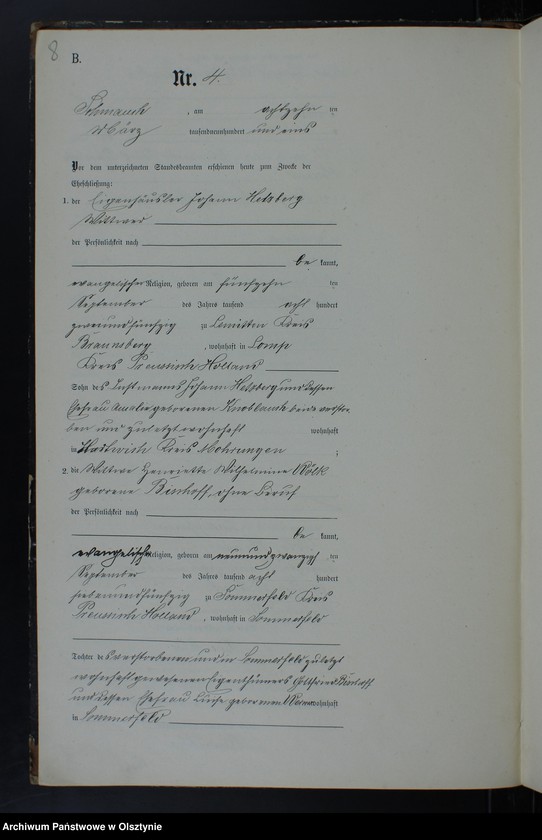 8
B.
Nr. 4.
Schmauch, am achtzehn ten
März tausendneunhundert und eins
Vor dem unterzeichneten Standesbeamten erschienen heute zum Zwecke der
Eheschließung:
1. der Eigenhäusler Johann Hetzberg
Wittwer
der Persönlichkeit nach
be kannt,
evangelischer Religion, geboren am fünfzehn ten
September des Jahres tausend acht hundert
zweiundfünfzig zu Lemitten Kreis
Braunsberg, wohnhaft in Lomp
Kreis Preussisch Holland
Sohn des Instmanns Johann Hetzberg und dessen
Ehefrau Amalie geborenen Knoblauch beide verstor
ben und zuletzt wohnhaft wohnhaft
in Kreis Mohrungen;
2. die Wittwe Henriette Wilhelmine Wölk
geborene Bischoff, ohne Beruf
der Persönlichkeit nach
be kannt,
evangelischer Religion, geboren am neunundzwanzigs ten
September des Jahres tausend acht hundert
siebenundfünfzig zu Sommerfeld Kreis
Preussisch Holland, wohnhaft in Sommerfeld
Tochter des verstorbenen und in Sommerfeld zuletzt
wohnhaft gewesenen Eigenthümers Gottfried Bischoff
und dessen Ehefrau geborenen wohnhaft
in Sommerfeld
Archiwum Państwowe w Olsztynie